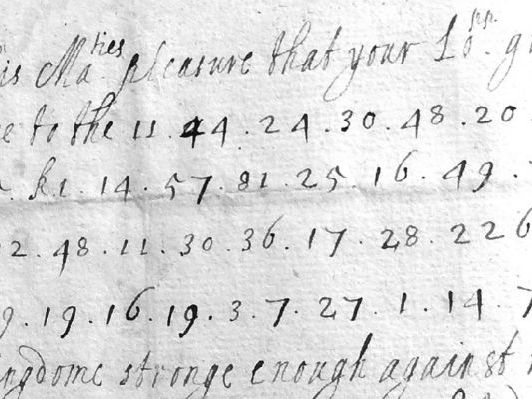 is Ma.ties pleasure that your Lo.pp. g
e to the 11 . 44 . 24 . 30 . 48 . 20
. k1 . 14 . 57 . 81 . 25 . 16 . 49 .
2 . 48 . 11 . 30 . 36 . 17 . 28 . 226
9 . 19 . 16 . 19 . 3 . 7 . 27 . 1 . 14 . 7
ngdome stronge enough against